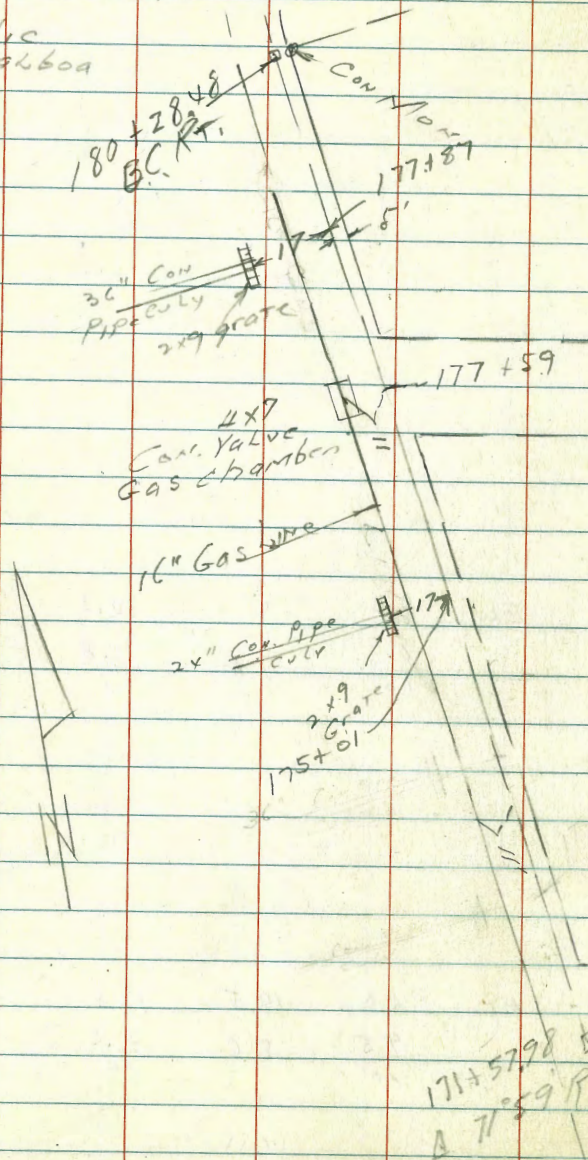 180+28.48
B.C. Rt.
Con Mon
177+87
5'
17
36" Con
Pipe Culv
2x9 grate
177+59
4x7
Con. Valve
Gas Chamber
11
16" Gas Line
2x" Con. Pipe
Culv
17
2x9
Grate
175+01
36
11
N
171+57.98
Δ 71°59 R